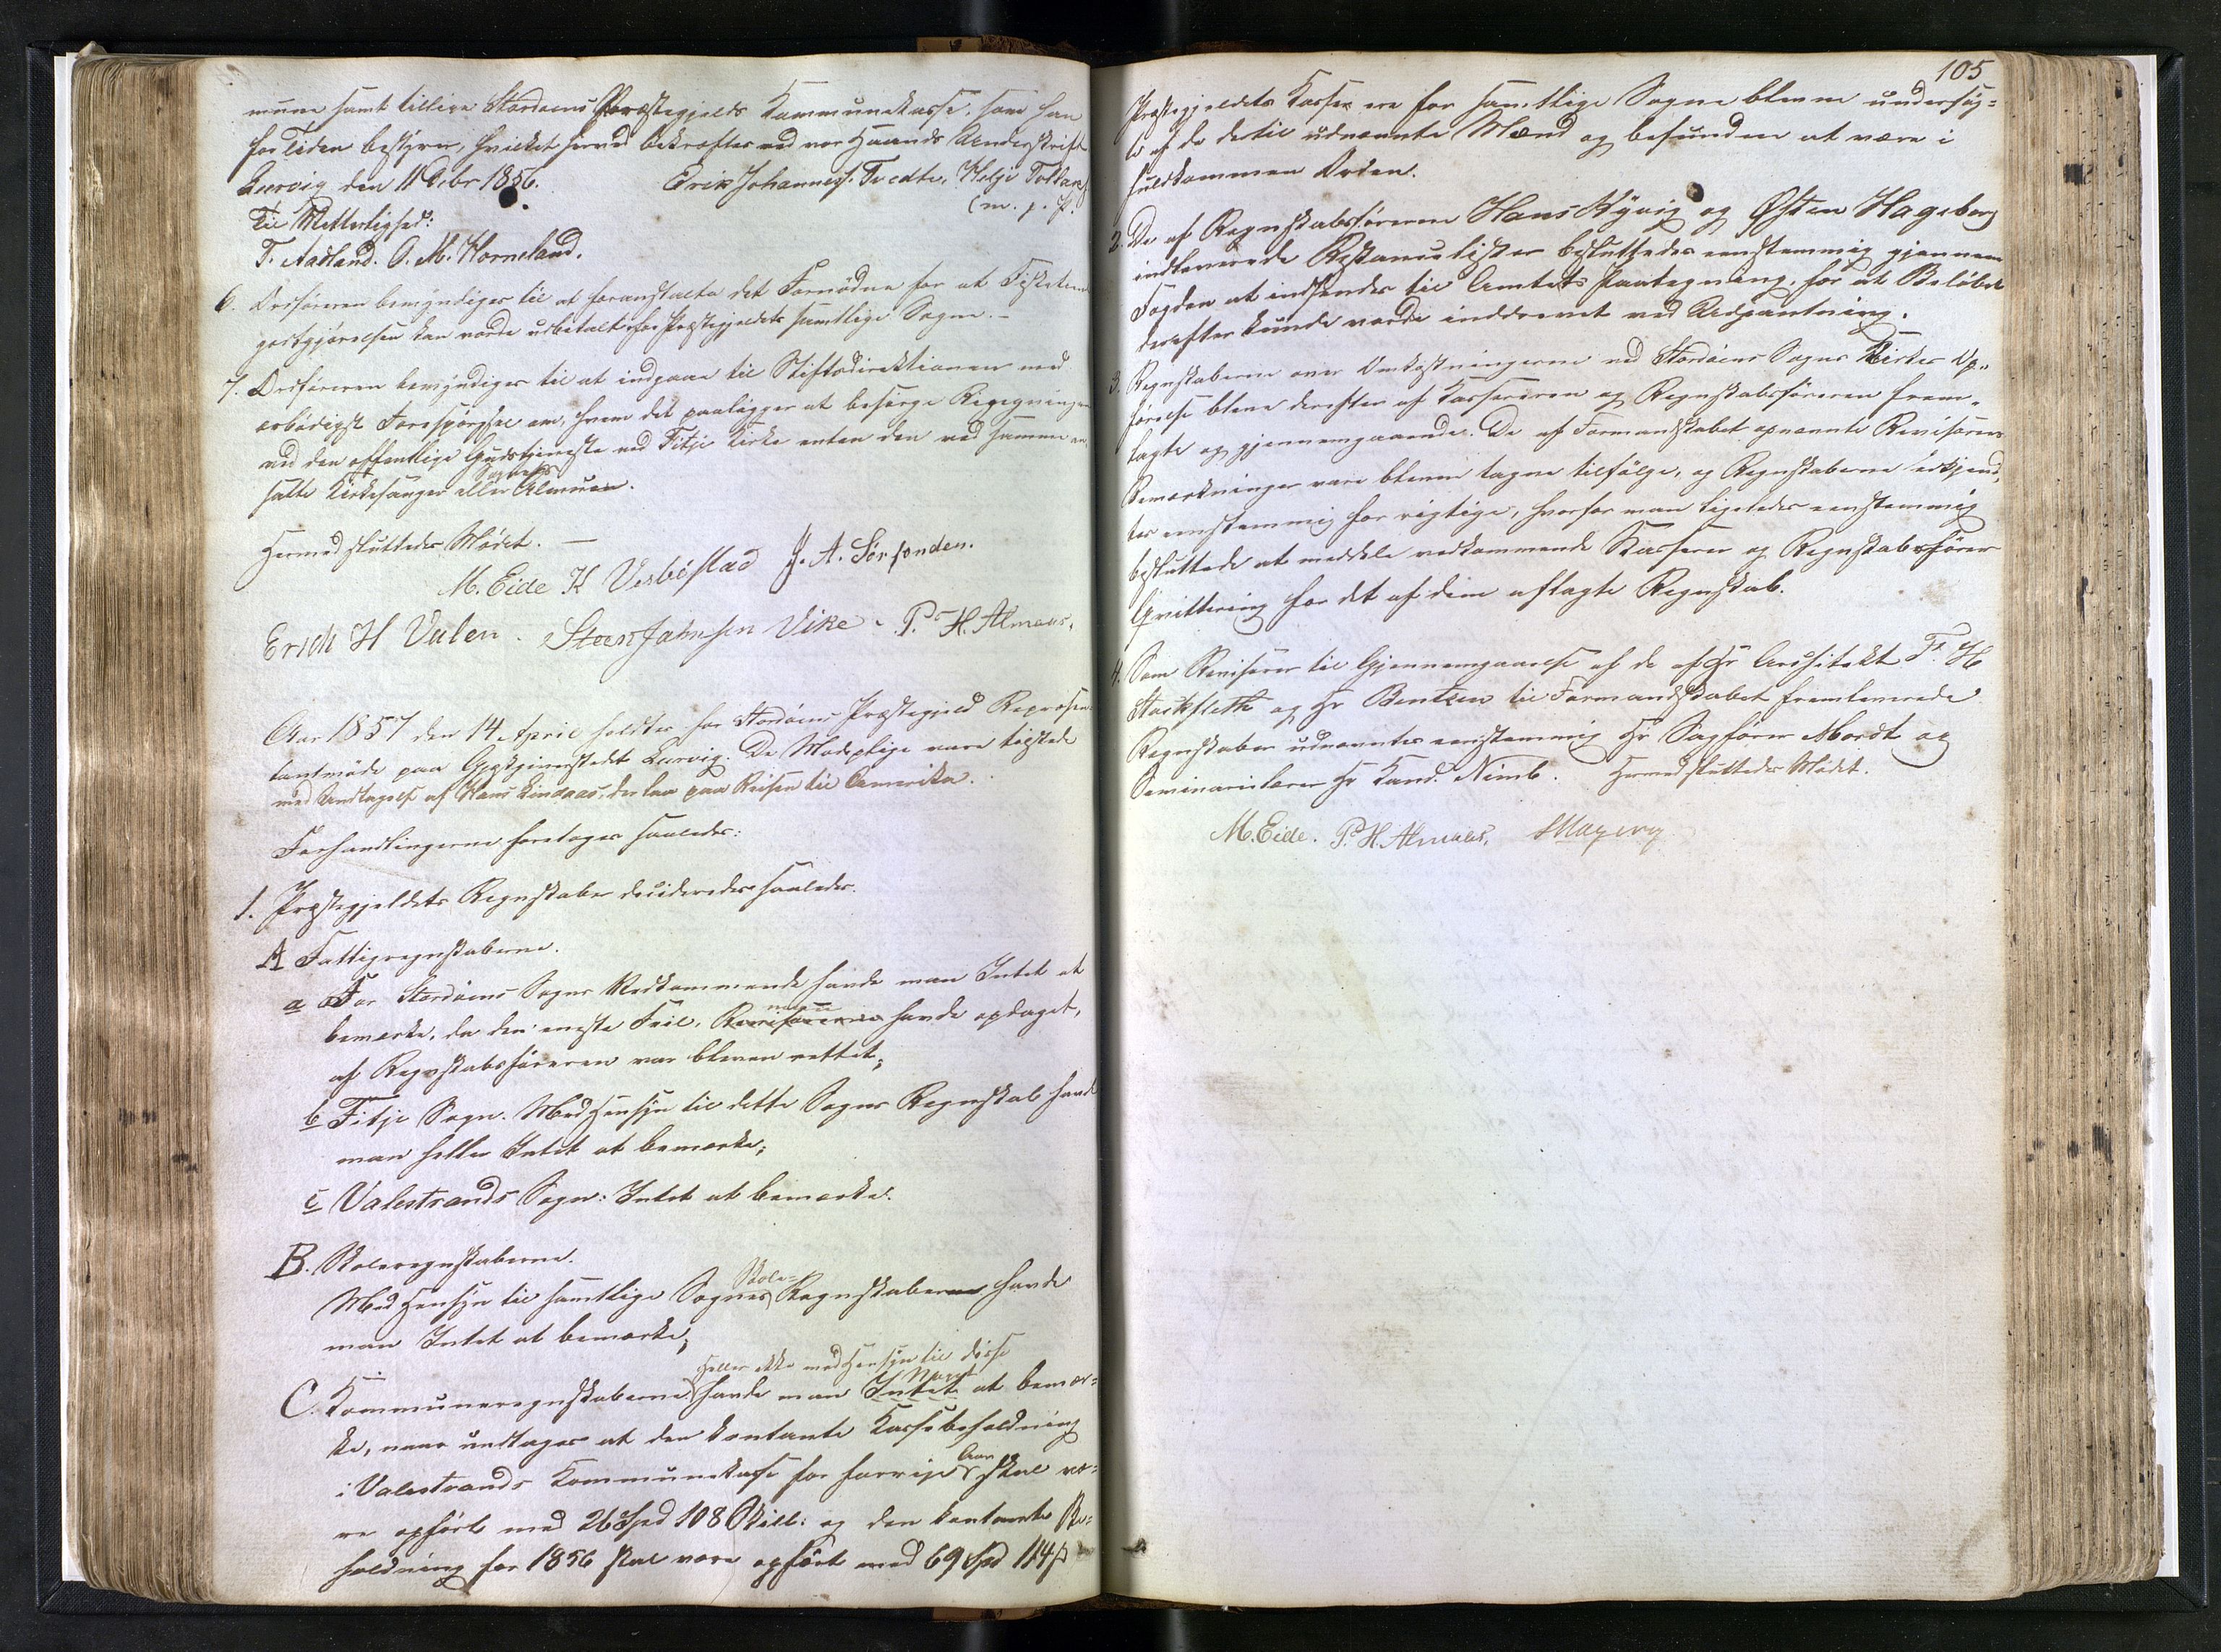 mune samt tillige Stordøens Præstegjelds Kommunekasse, som han
for Tiden bestyrer, hvilket herved bekræftes ved vor Haands Underskrift
Lervig den 11 Debr 1856. Erik Johanness. Tvedte, Helje Tollaks.
(m. p. P.
Til Vitterlighed:
T. Aadland. O. M. Horneland.
6. Ordføreren bemyndiges til at foranstalte det Fornødne for at
godtgjørelsen kan vorde udbetalt for Præstegjeldets samtlige Sogne. —
7. Ordføreren bemyndiges til at indgaae til Stiftsdirektionen med
ærbødigst Forespørgsel om, hvem det paaligger at besørge Ringningen
ved den offentlige Gudstjeneste ved Fitje Kirke enten den ved samme an-
Sognets
satte Kirkesanger eller Almuen.
Hermed sluttedes Mødet. —
M. Eide K Vesbøstad J. A. Sørhonden.
Erich H Valen. Steen Johnsen Vike. P. H. Almaas.
Aar 1857 den 14 April holdtes for Stordøens Præstegjeld Repræsen-
tantmøde paa Gjestgiverstedet Lervig. De Mødepligtige vare tilstede
med Undtagelse af Hans Lindaas, der laa paa Reisen til Amerika.
Forhandlingerne foretoges saaledes:
1. Præstegjeldets Regnskaber desideredes saaledes.
A Fattigregnskaberne.
a For Stordøens Sogns Vedkommende havde man Intet at
man
bemærke, da den eneste Feil, Revisorerne havde opdaget,
af Regnskabsføreren var bleven rettet;
b Fitje Sogn. Med Hensyn til dette Sogns Regnskab havde
man heller Intet at bemærke;
c Valestrands Sogn: Intet at bemærke.
B. Skoleregnskaberne.
Skole-
Med Hensyn til samtlige Sognes Regnskaberne havde
man Intet at bemærke;
Heller ikke med Hensyn til disse
Noget
C. Kommuneregnskaberne havde man Intet at bemær-
ke, naar undtages at den kontante Kassebeholdning
Aar
i Valestrands Kommunekasse for forrige skal væ-
re opført med 26 Spd 108 Skill: og den kontante Be-
holdning for 1856 skal være opført med 69 Spd 114 ß
105
Præstegjeldets Kasser ere for samtlige Sogne blevne undersøg-
te af de dertil udnævnte Mænd og befundne at være i
fuldkommen Orden.
2. De af Regnskabsførerne Hans Nyvig og Østen Hageberg
indleverede Restancelister besluttedes eenstemmig gjennem
Fogden at indsendes til Amtets Paategning, for at Beløbet
derefter kunde vorde inddrevet ved Udpantning.
3. Regnskaberne over Omkostningerne ved Stordøens Sogns Kirkes Op-
førelse bleve derefter af Kassereren og Regnskabsføreren frem-
lagte og gjennemgaaede. De af Formandskabet opnævnte Revisorers
Bemærkninger vare blevne tagne tilfølge, og Regnskaberne erkjend-
tes eenstemmig for rigtige, hvorfor man ligeledes eenstemmig
besluttede at meddele vedkommende Kasserer og Regnskabsfører
Qvittering for det af dem aflagte Regnskab.
4. Som Revisorer til Gjennemgaaelse af de af Hr Architekt Fr. H
Stockfleth og Hr Bentzen til Formandskabet fremleverede
Regnskaber udnævntes eenstemmig Hr Sagfører Mordt og
Seminarielærer Hr Kand. Nimb. Hermed sluttedes Mødet.
M. Eide. P. H. Almaas,